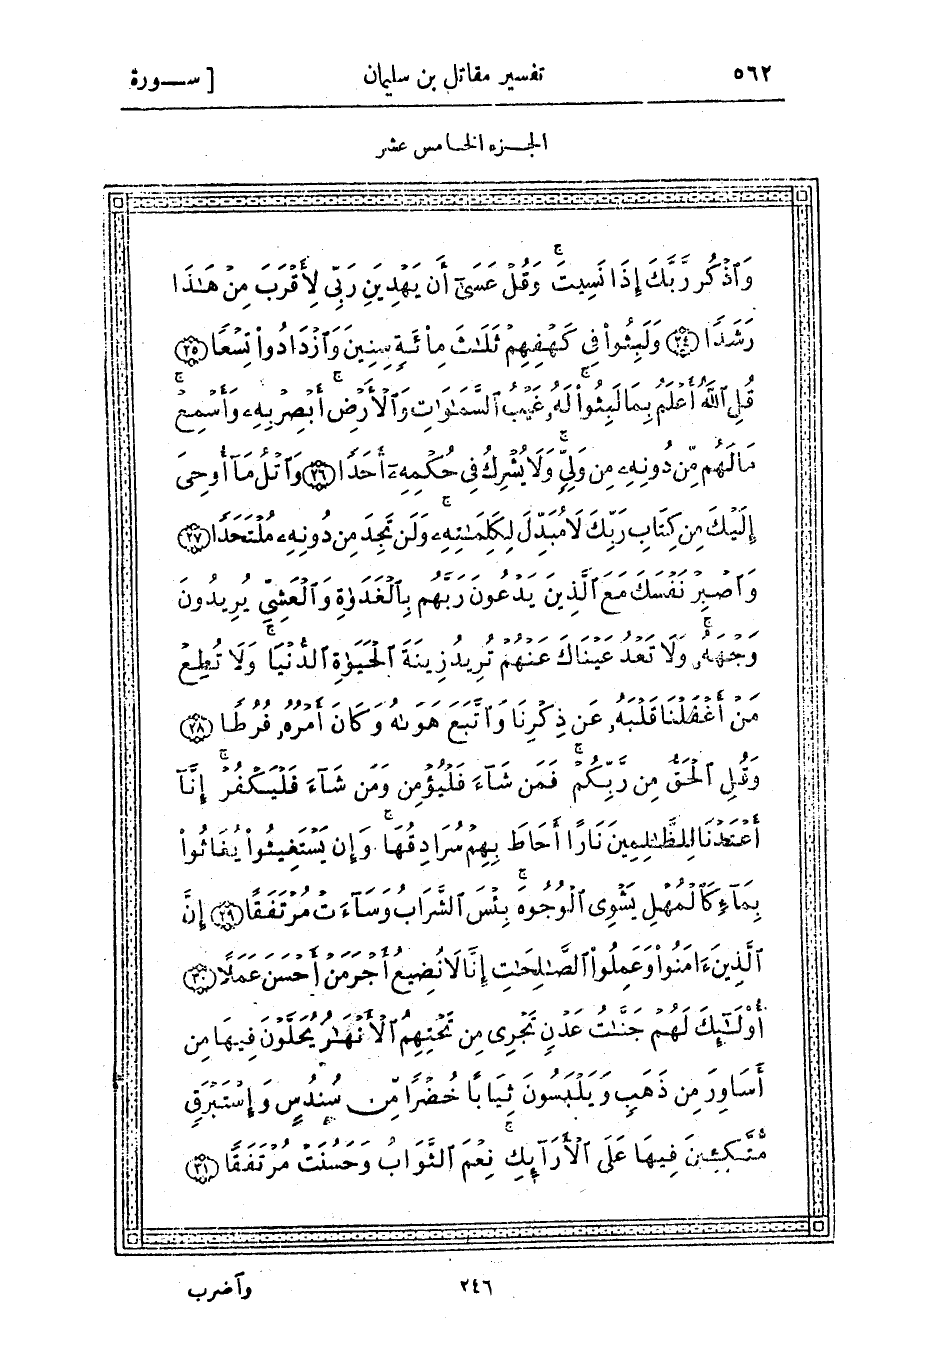 ٥٦٢ تفسير مقاتل بن سليمان [ ســورة
الجزء الخامس عشر
وَٱذْكُر رَّبَّكَ إِذَا نَسِيتَ ۚ وَقُلْ عَسَىٰٓ أَن يَهْدِيَنِ رَبِّى لِأَقْرَبَ مِنْ هَـٰذَا
رَشَدًا ﴿٢٤﴾ وَلَبِثُوا۟ فِى كَهْفِهِمْ ثَلَـٰثَ مِا۟ئَةٍ سِنِينَ وَٱزْدَادُوا۟ تِسْعًا ﴿٢٥﴾
قُلِ ٱللَّهُ أَعْلَمُ بِمَا لَبِثُوا۟ ۖ لَهُۥ غَيْبُ ٱلسَّمَـٰوَٰتِ وَٱلْأَرْضِ ۖ أَبْصِرْ بِهِۦ وَأَسْمِعْ ۚ
مَا لَهُم مِّن دُونِهِۦ مِن وَلِىٍّ وَلَا يُشْرِكُ فِى حُكْمِهِۦٓ أَحَدًا ﴿٢٦﴾ وَٱتْلُ مَآ أُوحِىَ
إِلَيْكَ مِن كِتَابِ رَبِّكَ ۖ لَا مُبَدِّلَ لِكَلِمَـٰتِهِۦ وَلَن تَجِدَ مِن دُونِهِۦ مُلْتَحَدًا ﴿٢٧﴾
وَٱصْبِرْ نَفْسَكَ مَعَ ٱلَّذِينَ يَدْعُونَ رَبَّهُم بِٱلْغَدَوٰةِ وَٱلْعَشِىِّ يُرِيدُونَ
وَجْهَهُۥ ۖ وَلَا تَعْدُ عَيْنَاكَ عَنْهُمْ تُرِيدُ زِينَةَ ٱلْحَيَوٰةِ ٱلدُّنْيَا ۖ وَلَا تُطِعْ
مَنْ أَغْفَلْنَا قَلْبَهُۥ عَن ذِكْرِنَا وَٱتَّبَعَ هَوَىٰهُ وَكَانَ أَمْرُهُۥ فُرُطًا ﴿٢٨﴾
وَقُلِ ٱلْحَقُّ مِن رَّبِّكُمْ ۖ فَمَن شَآءَ فَلْيُؤْمِن وَمَن شَآءَ فَلْيَكْفُرْ ۚ إِنَّآ
أَعْتَدْنَا لِلظَّـٰلِمِينَ نَارًا أَحَاطَ بِهِمْ سُرَادِقُهَا ۚ وَإِن يَسْتَغِيثُوا۟ يُغَاثُوا۟
بِمَآءٍ كَٱلْمُهْلِ يَشْوِى ٱلْوُجُوهَ ۚ بِئْسَ ٱلشَّرَابُ وَسَآءَتْ مُرْتَفَقًا ﴿٢٩﴾ إِنَّ
ٱلَّذِينَ ءَامَنُوا۟ وَعَمِلُوا۟ ٱلصَّـٰلِحَـٰتِ إِنَّا لَا نُضِيعُ أَجْرَ مَنْ أَحْسَنَ عَمَلًا ﴿٣٠﴾
أُو۟لَـٰٓئِكَ لَهُمْ جَنَّـٰتُ عَدْنٍ تَجْرِى مِن تَحْتِهِمُ ٱلْأَنْهَـٰرُ يُحَلَّوْنَ فِيهَا مِنْ
أَسَاوِرَ مِن ذَهَبٍ وَيَلْبَسُونَ ثِيَابًا خُضْرًا مِّن سُندُسٍ وَإِسْتَبْرَقٍ
مُّتَّكِـِٔينَ فِيهَا عَلَى ٱلْأَرَآئِكِ ۚ نِعْمَ ٱلثَّوَابُ وَحَسُنَتْ مُرْتَفَقًا ﴿٣١﴾
٢٤٦ وٱضرب